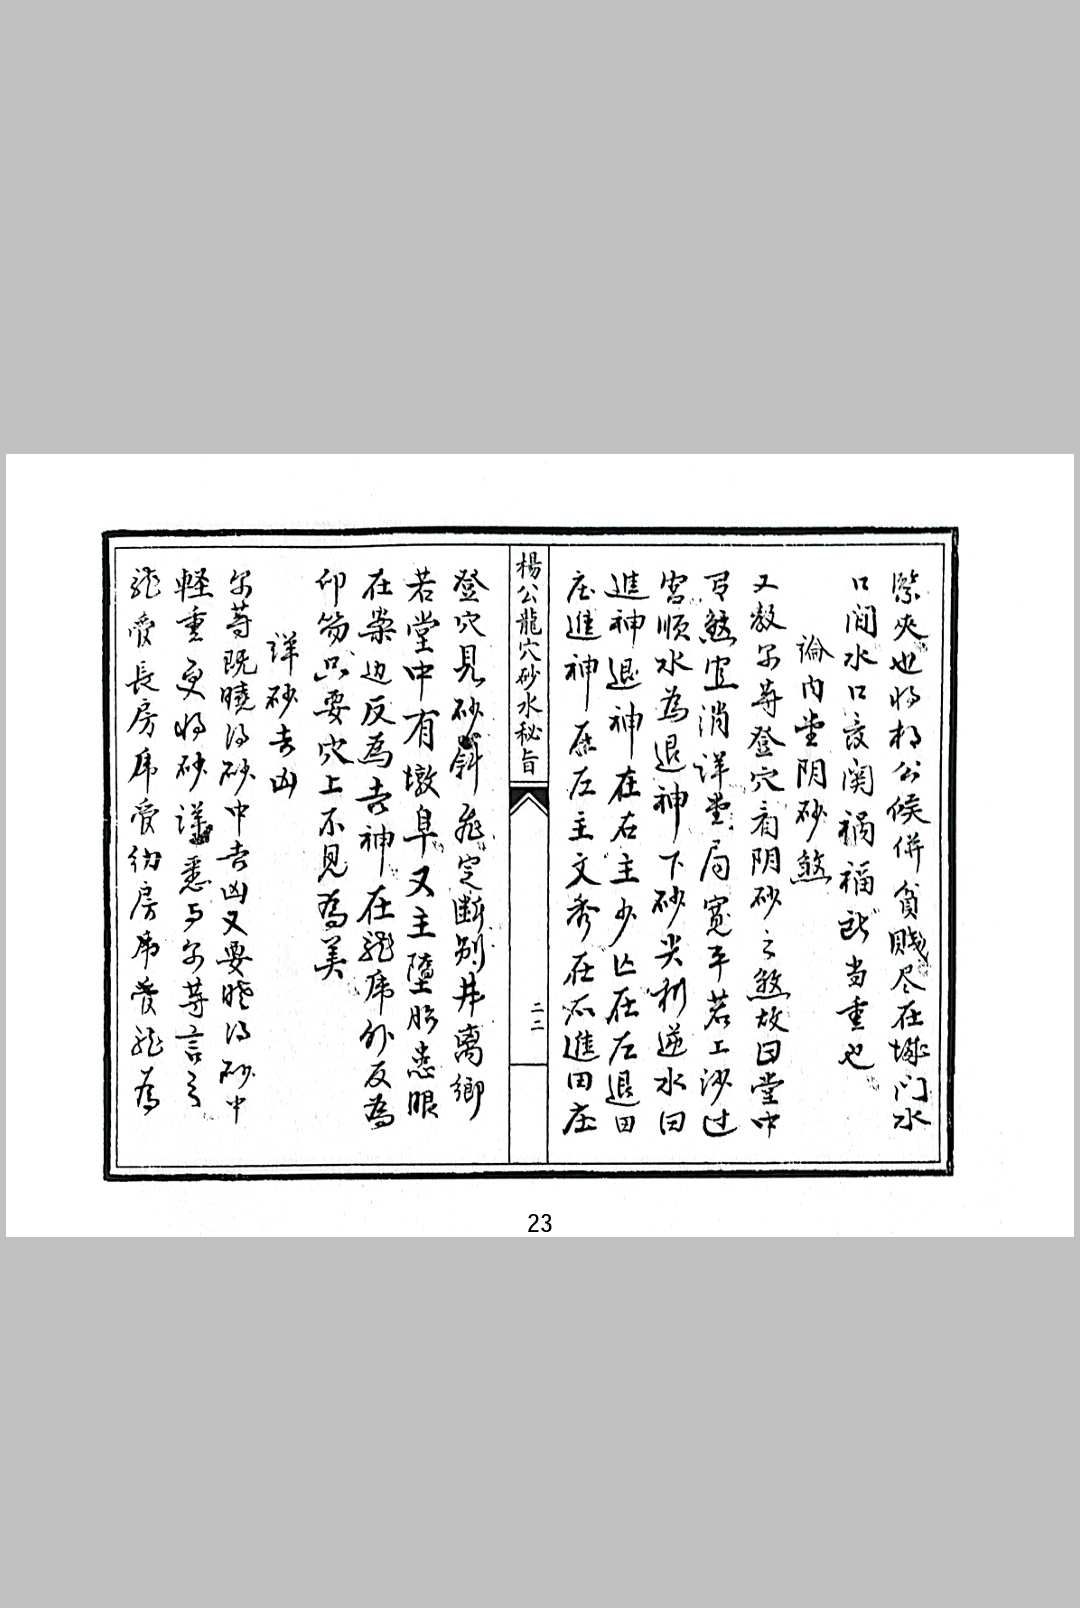 緊夾也将相公候併貧賤尽在城门水
口間水口交関禍福訣当重也
論内堂阴砂煞
又教尔等登穴看阴砂之煞故曰堂中
有煞宜消详堂局寬平若工沙过
宮順水為退神下砂尖利逆水曰
進神退神在右主少亡在左退田
庄進神居左主文秀在右進田庄
楊公龍穴砂水秘旨
二二
登穴見砂斜飛定断别井离鄉
若堂中有墩阜又主墮胎患眼
在案边反為吉神在龍虎外反為
印笏只要穴上不見為美
详砂吉凶
尔等既曉得砂中吉凶又要晓得砂中
軽重更将砂谨悉与尔等言之
龍管長房虎管幼房虎管龍為
23